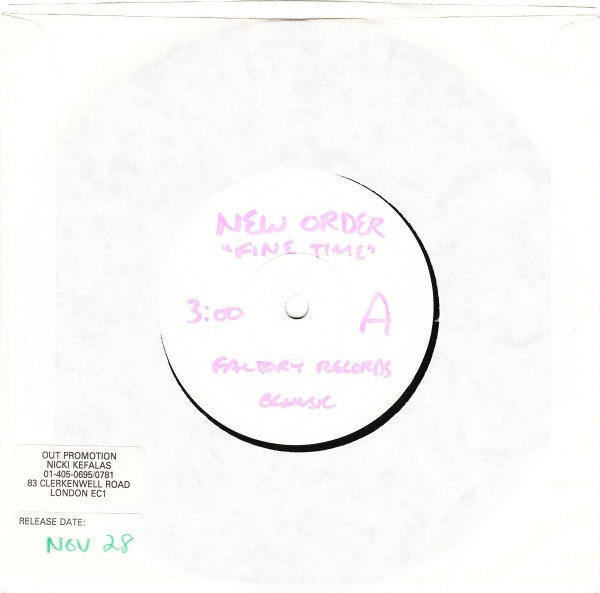 NEW ORDER
"FINE TIME"
3:00 A
FACTORY RECORDS
BEMUSIC
OUT PROMOTION
NICKI KEFALAS
01-405-0695/0781
83 CLERKENWELL ROAD
LONDON EC1
RELEASE DATE:
NOV 28